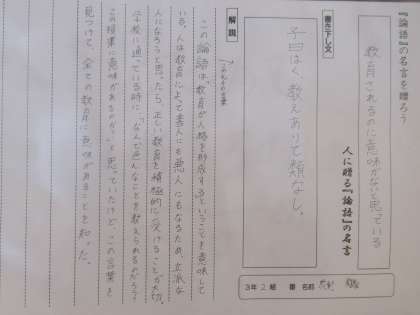 『論語』の名言を贈ろう
教育されるのに意味がないと思っている
人に贈る『論語』の名言
書き下し文
子曰はく、教えありて類なし。
解説
この論語は、教育が人格を形成するということを意味して
いる。人は教育によって善人にも悪人にもなるため、立派な
人になろうと思ったら、正しい教育を積極的に受けることが大切。
学校に通っている時に、「なんで色んなことを教えられるのだろう?
この授業に意味があるのか。」と思っていたけど、この言葉を
見つけて、全ての教育に意味があることを知った。
3年2組 番 名前